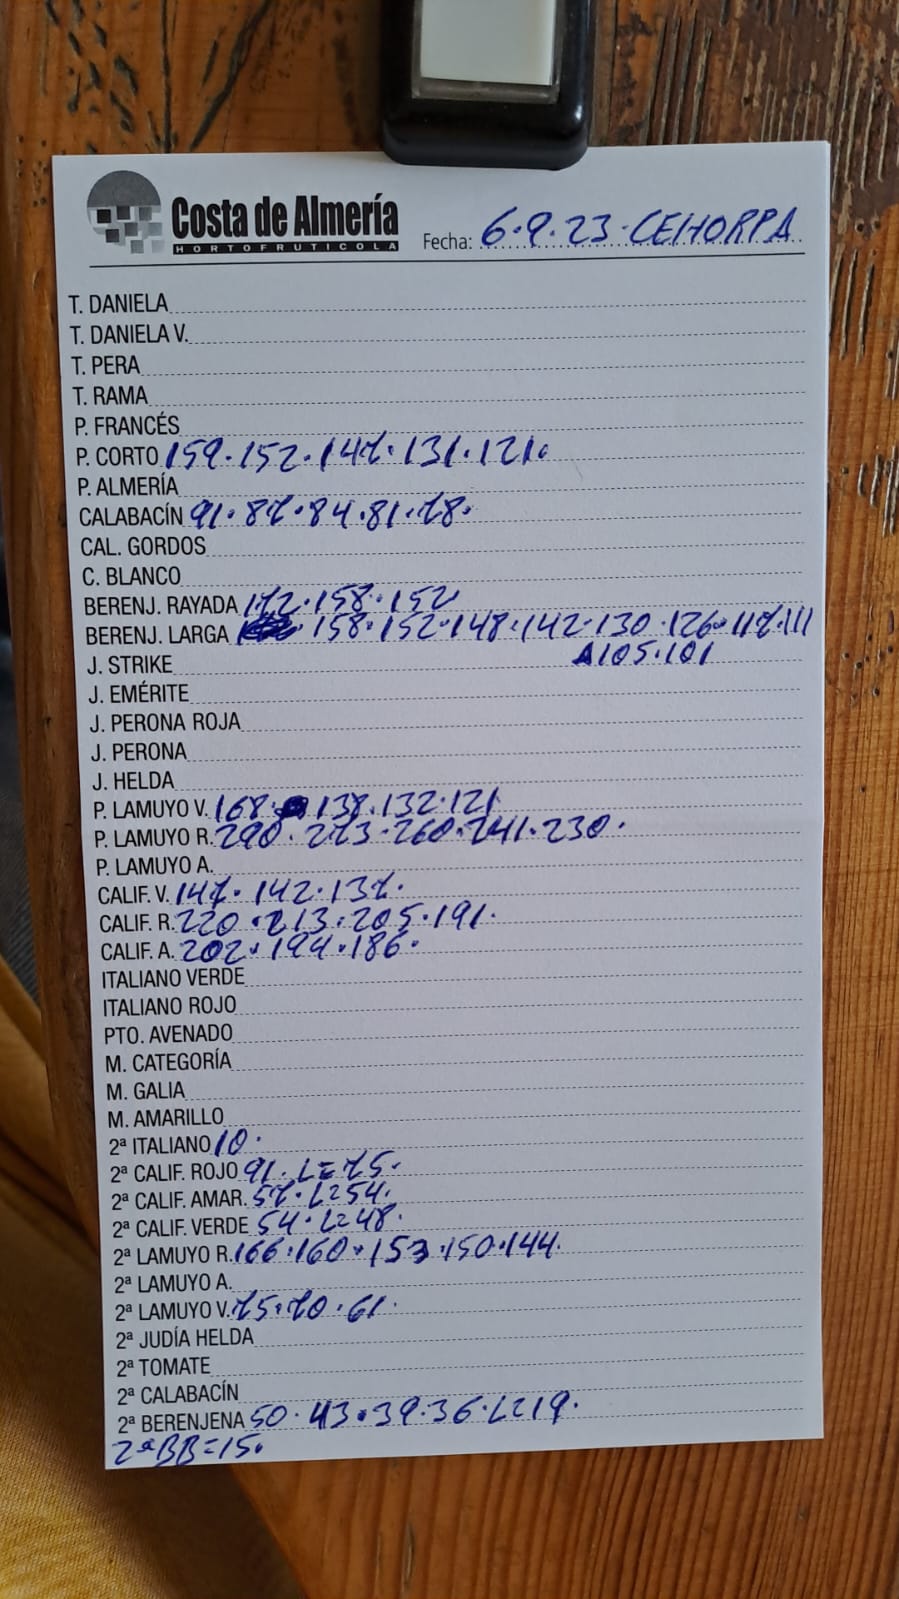 Costa de Almería
HORTOFRUTICOLA
Fecha: 6.9.23.CEHORPA
T. DANIELA
T. DANIELA V.
T. PERA
T. RAMA
P. FRANCÉS
P. CORTO 159.152.147.131.121.
P. ALMERÍA
CALABACÍN 91.87.84.81.78.
CAL. GORDOS
C. BLANCO
BERENJ. RAYADA 172.158.152
BERENJ. LARGA 158.152.148.142.130.126.117.111
J. STRIKE 105.101
J. EMÉRITE
J. PERONA ROJA
J. PERONA
J. HELDA
P. LAMUYO V. 168. 138.132.121
P. LAMUYO R. 290.273.260.241.230.
P. LAMUYO A.
CALIF. V. 147.142.137.
CALIF. R. 220.213.205.191.
CALIF. A. 202.194.186.
ITALIANO VERDE
ITALIANO ROJO
PTO. AVENADO
M. CATEGORÍA
M. GALIA
M. AMARILLO
2ª ITALIANO 10.
2ª CALIF. ROJO 91.L=75.
2ª CALIF. AMAR. 57.L=54.
2ª CALIF. VERDE 54.L=48.
2ª LAMUYO R. 166.160.153.150.144.
2ª LAMUYO A.
2ª LAMUYO V. 75.70.61.
2ª JUDÍA HELDA
2ª TOMATE
2ª CALABACÍN
2ª BERENJENA 50.43.39.36.L=19.
2ªBB=15.